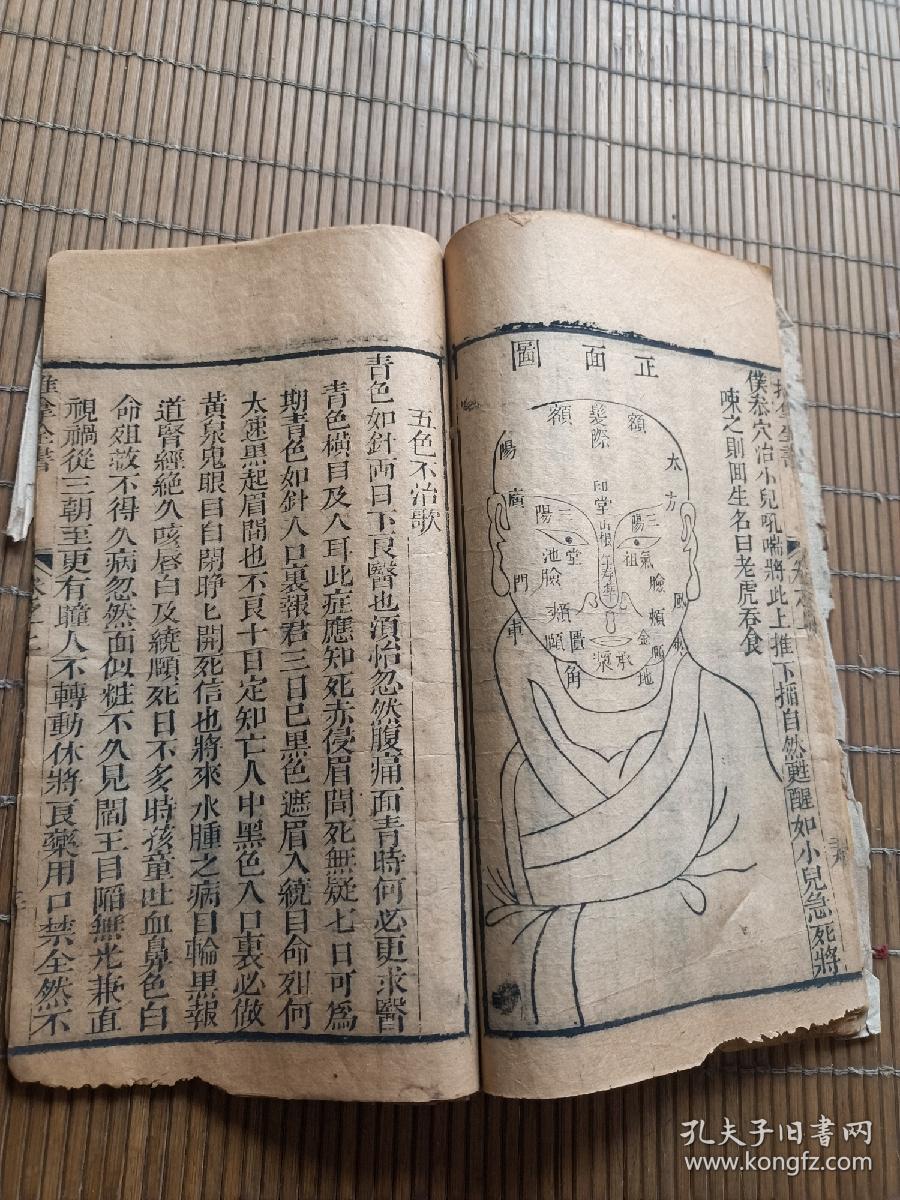 僕參穴治小兒吼喘將此上推下搯自然甦醒如小兒急死將
𠲿之則回生名曰老虎吞食
正面圖
額
髮際
額
太
方
陽
廣
印堂
山根
三陽
三陽
氣
祖
堂
池
臉
臉
年壽
風
門
頰
頰
頤
頤
金
匱
車
角
地
承
漿
五色不治歌
青色如針兩日下良醫也須怡忽然腹痛面青時何必更求醫
青色橫目及入耳此症應知死赤侵眉間死無疑七日可爲
期青色如針入口裏報君三日巳黑色遮眉入繞目命𣨼何
太速黑起眉間也不良十日定知亡人中黑色入口裏必做
黃泉鬼眼目自閉睜匕開死信也將來水腫之病目輪黑報
道腎經絶久咳唇白及繞頤死日不多時孩童吐血鼻色白
命𣨼故不得久病忽然面似粧不久見閻王目陷無光兼直
視禍從三朝至更有瞳人不轉動休將良藥用口禁全然不
推拿全書